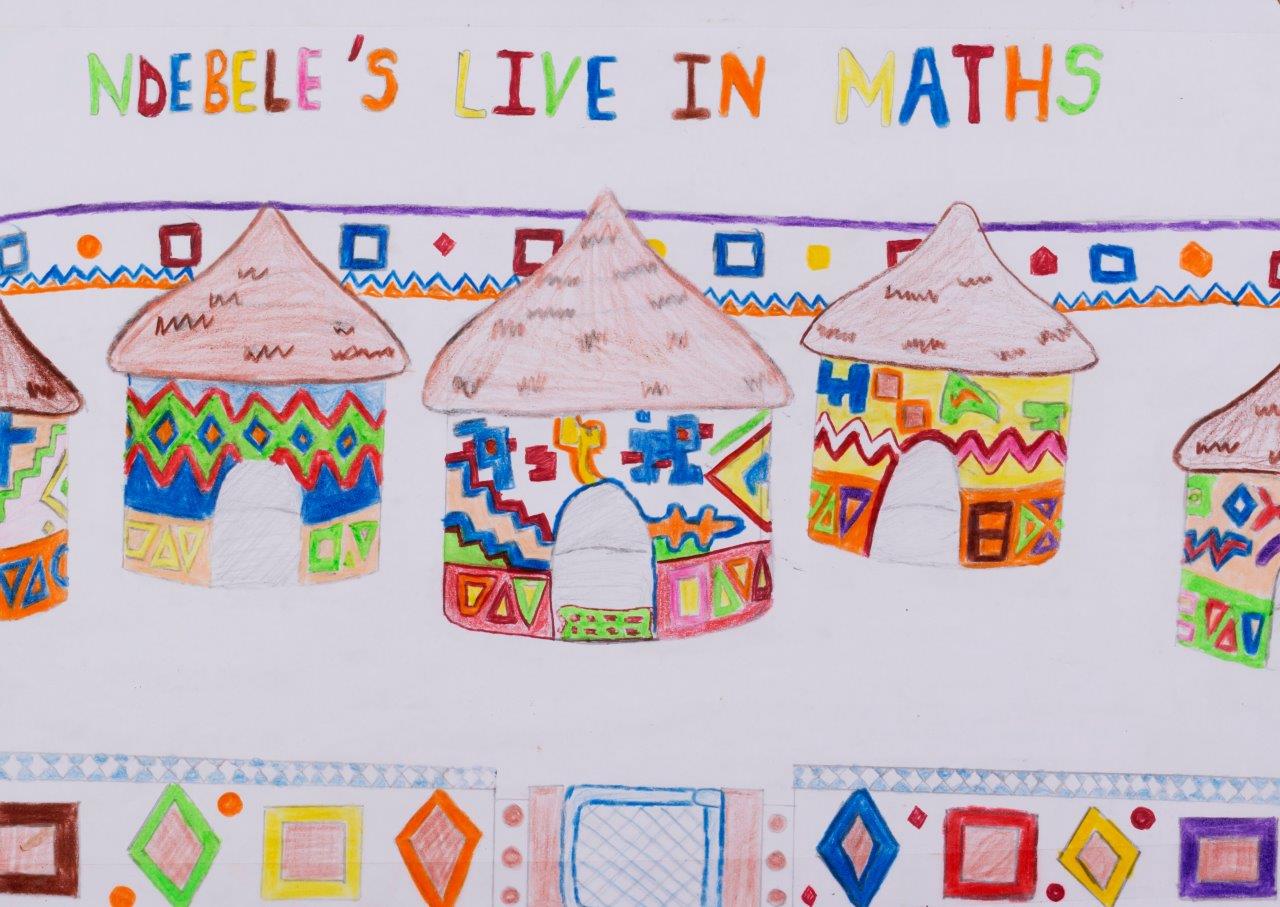 NDEBELE'S LIVE IN MATHS